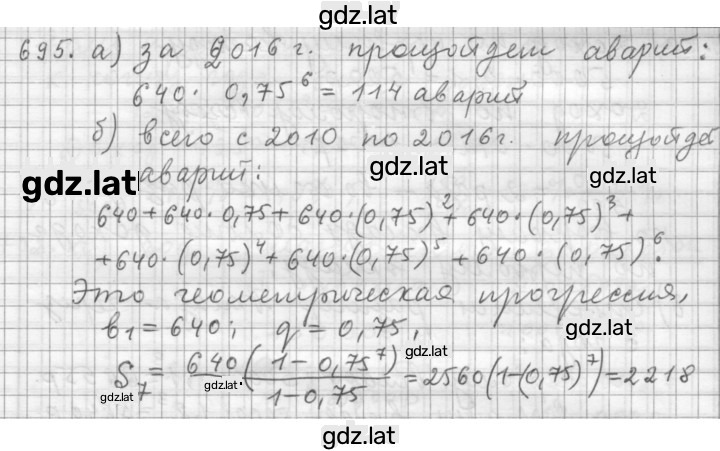 gdz.lat
695. а) за 2016 г. произойдет аварий:
640 · 0,75⁶ = 114 аварий
б) всего с 2010 по 2016 г. произойдет
gdz.lat
gdz.lat аварий: gdz.lat
640 + 640 · 0,75 + 640 · (0,75)² + 640 · (0,75)³ +
+ 640 · (0,75)⁴ + 640 · (0,75)⁵ + 640 · (0,75)⁶.
Это геометрическая прогрессия,
в₁ = 640; q = 0,75, gdz.lat
S₇ = 640 · (1 - 0,75⁷) / 1 - 0,75 = 2560(1-(0,75)⁷) = 2218
gdz.lat
gdz.lat
gdz.lat
gdz.lat